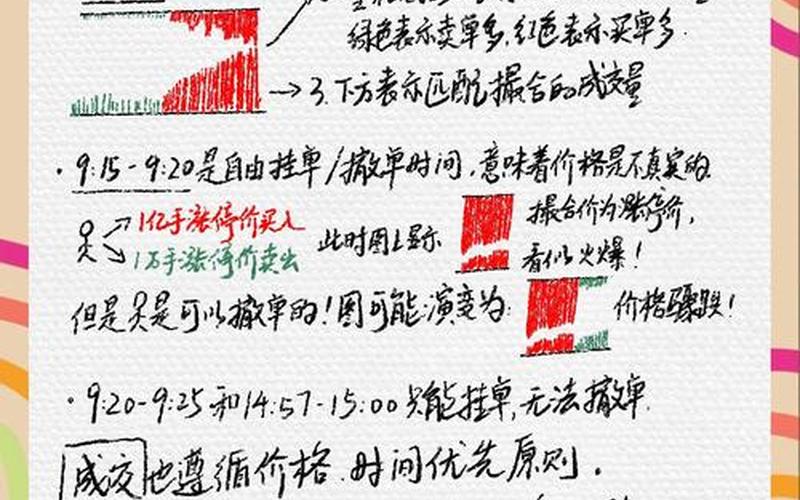 绿色表示卖单多,红色表示买单多.
→3.下方表示匹配撮合的成交量
·9:15-9:20是自由挂单/撤单时间,意味着价格是不真实的
1亿手涨停价买入
1万手涨停价卖出
此时图上显示
撮合价为涨停价,
看似火爆!
但是是可以撤单的!图可能演变为:
价格骤跌!
·9:20-9:25和14:57-15:00只能挂单,无法撤单.
成交也遵循价格.时间优先原则.